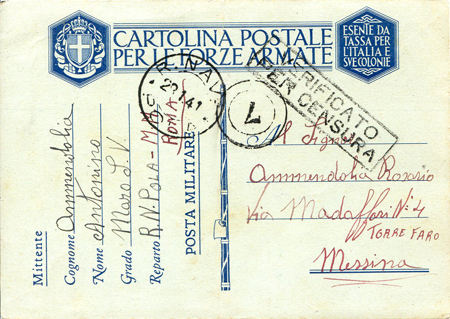 CARTOLINA POSTALE
PER LE FORZE ARMATE
ESENTE DA
TASSA PER
L'ITALIA E
SVE COLONIE
VERIFICATO
PER CENSURA
7
POSTA MILITARE
Mittente
Cognome Ammendolia
Nome Antonino
Grado Maro S.V.
Reparto R.N. POLA - M.M.
ROMA
Al Signor
Ammendolia Rosario
Via Madaffari N: 4
TORRE FARO
Messina